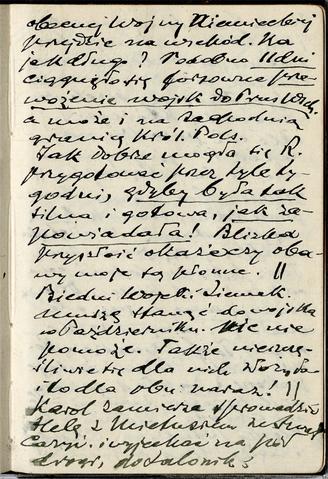 obecnej Wojny Niemieckiej
przejdzie na wschód. Na
jak długo? Podobno 11 dni
ciągnęło się forsowne prze-
wożenie wojsk do Prus Wsch.
a może i na zachodnią
granicę Król. Pols.
Tak dobrze mogła się R.
przygotować przez tyle ty-
godni, gdyby była tak
silna i gotowa, jak za-
powiadała! Bliska
przyszłość okaże czy oba-
wy moje są płonne. ||
Biedni Wojtek i Ziemek
muszą stanąć do wojska
w Październiku. Nic nie
pomoże. Także nieszczę-
śliwie się dla nich złożyło
i to dla obu naraz! ||
Karol zamierza sprowadzić
Helę z
i wyjechać na pół
drogi, do